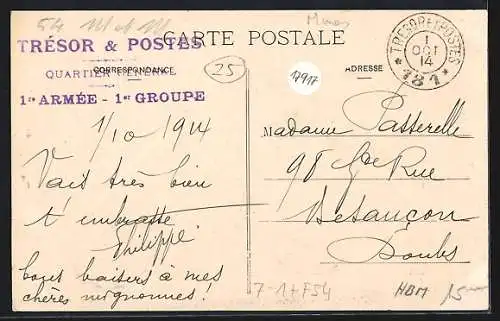 54 M et M
Mmes
TRÉSOR & POSTES
CARTE POSTALE
QUARTIER GÉNÉRAL
CORRESPONDANCE
25
17917
ADRESSE
TRESOR ET POSTES
1
OCT
14
* 131 *
1re ARMÉE - 1er GROUPE
1/10 1914
Madame Passerelle
98 Gde Rue
Besançon
Doubs
Vais très bien
t'embrasse
Philippe
bons baisers à mes
chères mignonnes!
7-1+F54
HBM
15